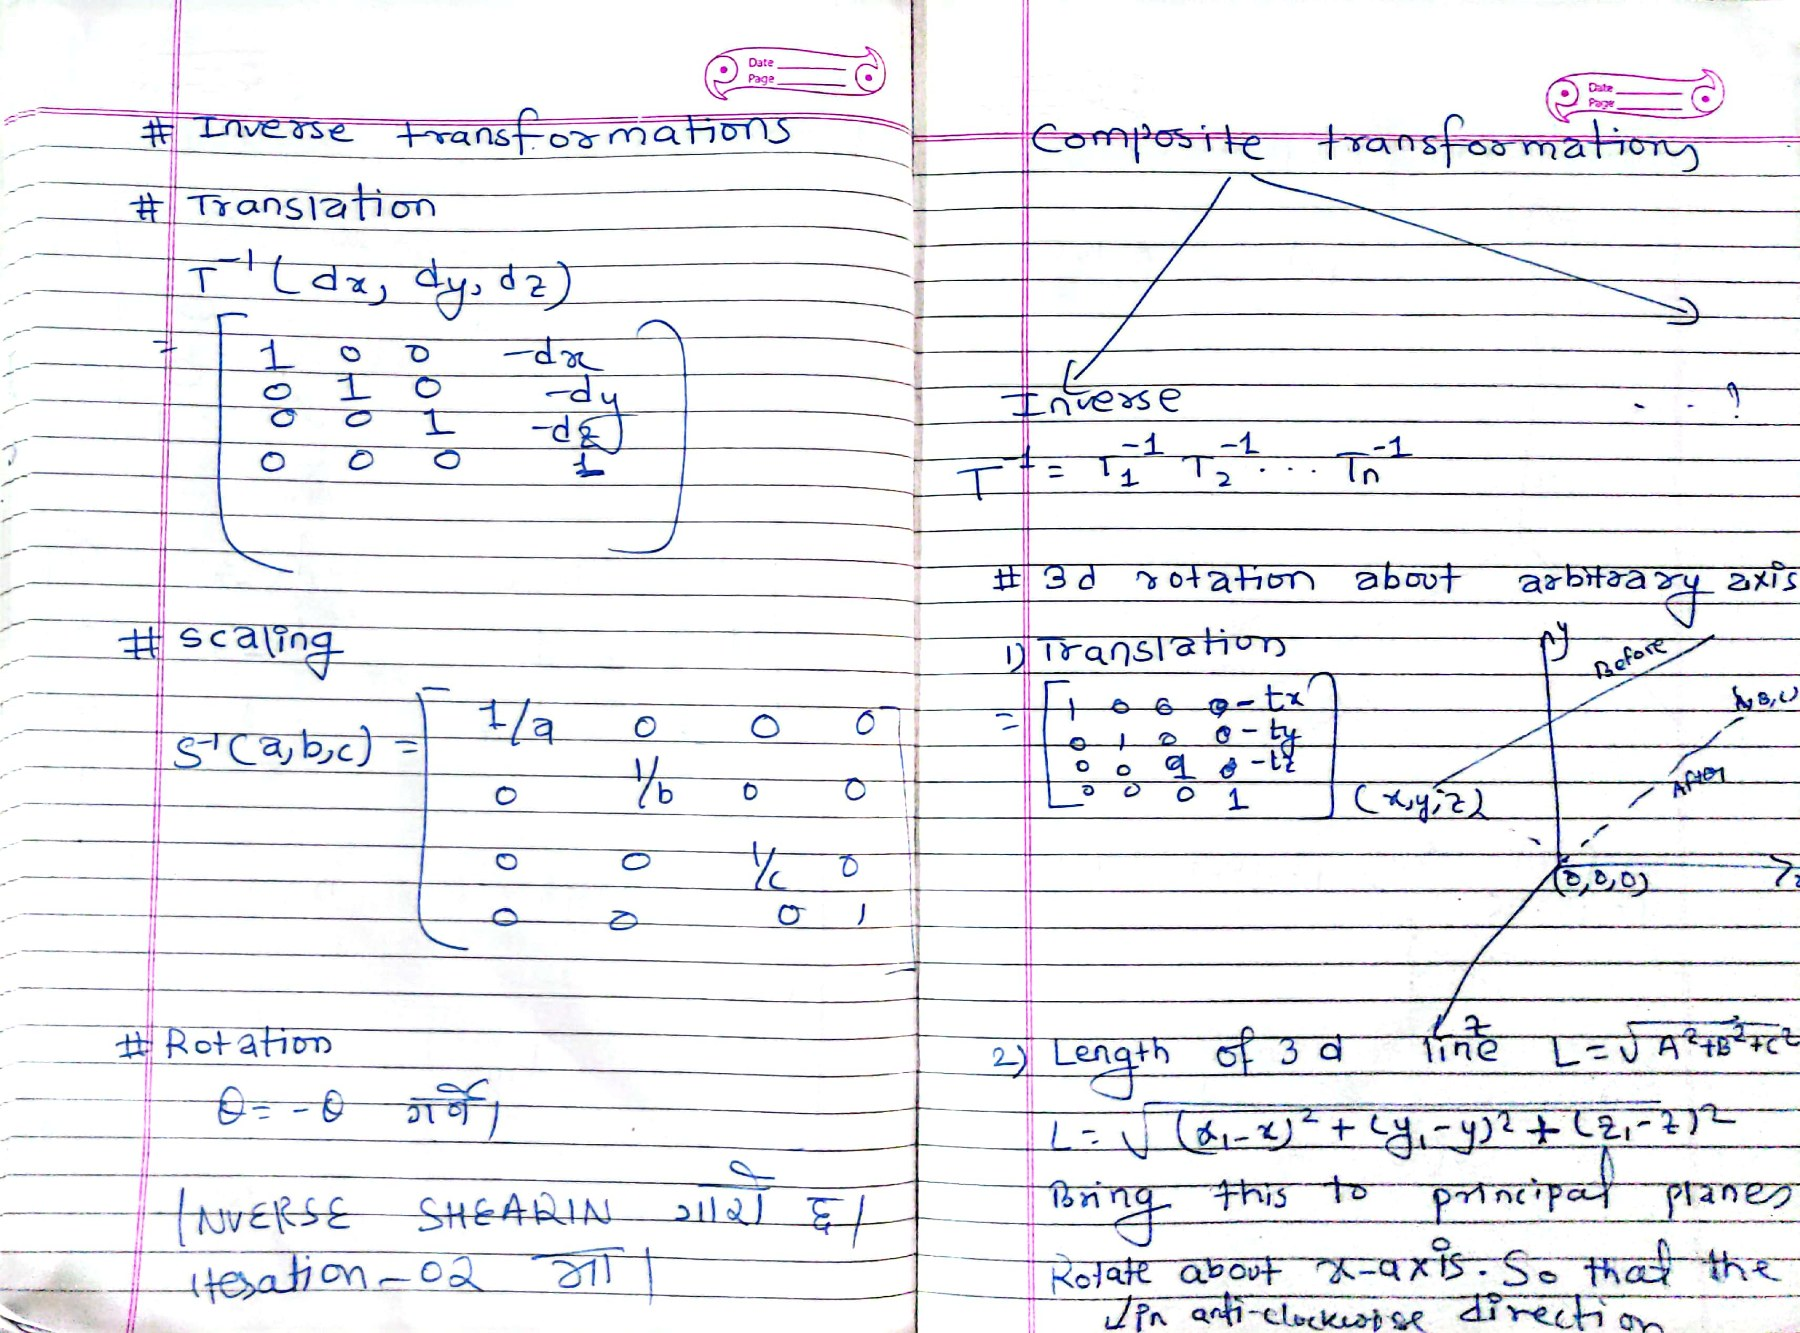 Date
Page
# Inverse transformations
# Translation
T⁻¹ (dx, dy, dz)
= [ 1 0 0 -dx
0 1 0 -dy
0 0 1 -dz
0 0 0 1 ]
# scaling
S⁻¹(a,b,c) = [ 1/a 0 0 0
0 1/b 0 0
0 0 1/c 0
0 0 0 1 ]
# Rotation
θ = -θ गर्ने।
INVERSE SHEARIN गाह्रो छ।
iteration-02 मा।
Date
Page
Composite transformations
Inverse
. . . ?
T⁻¹ = T₁⁻¹ T₂⁻¹ ... Tn⁻¹
# 3d rotation about arbitrary axis
1) Translation
= [ 1 0 0 -tx
0 1 0 -ty
0 0 1 -tz
0 0 0 1 ]
y
Before
After
(x,y,z)
(0,0,0)
z
2) Length of 3d line L = √A²+B²+C²
L = √(x₁-x)² + (y₁-y)² + (z₁-z)²
Bring this to principal planes
Rotate about x-axis. So that the
↓in anti-clockwise direction